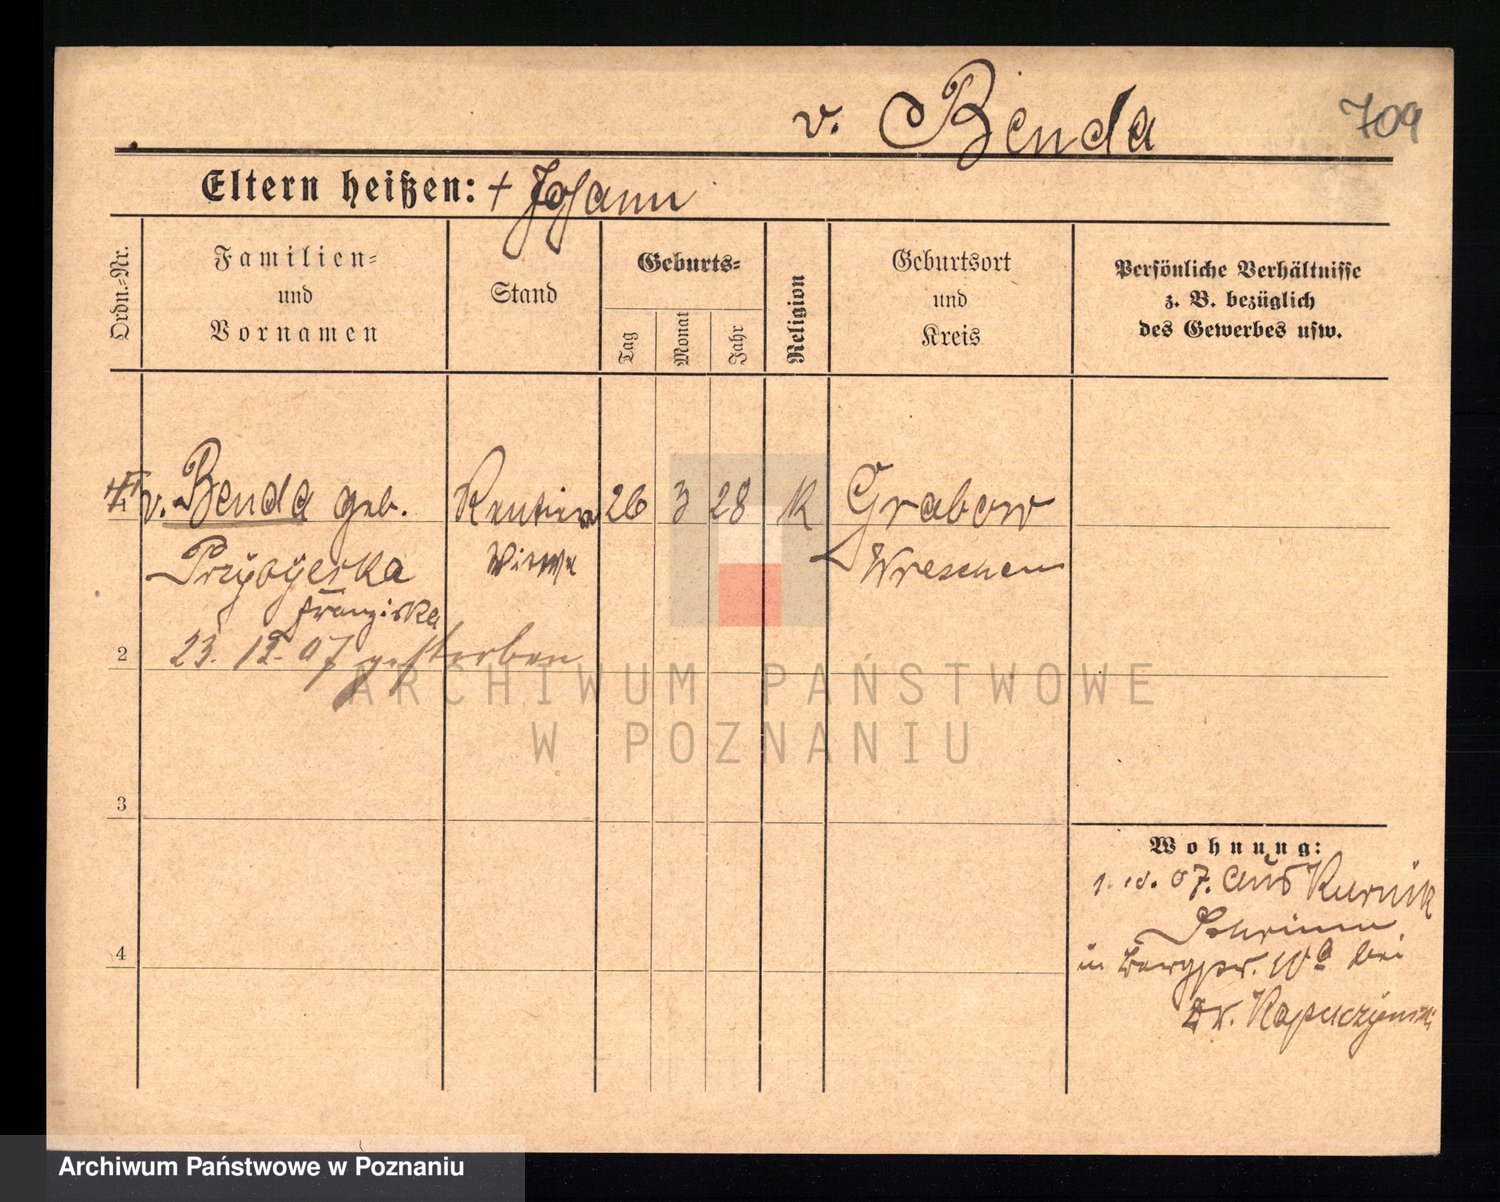 v. Benda
709
Eltern heißen: + Johann
Ordn.-Nr.
Familien-
und
Vornamen
Stand
Geburts-
Tag
Monat
Jahr
Religion
Geburtsort
und
Kreis
Persönliche Verhältnisse
z. B. bezüglich
des Gewerbes usw.
v. Benda geb. Rentier 26 3 28 K Grabow
Witwe Wreschen
Franziska
23. 12. 07 gestorben
2
3
4
Wohnung:
07. aus Kurnik
Schrimm
in Bergstr. bei
Dr.
ARCHIWUM PAŃSTWOWE
W POZNANIU
Archiwum Państwowe w Poznaniu